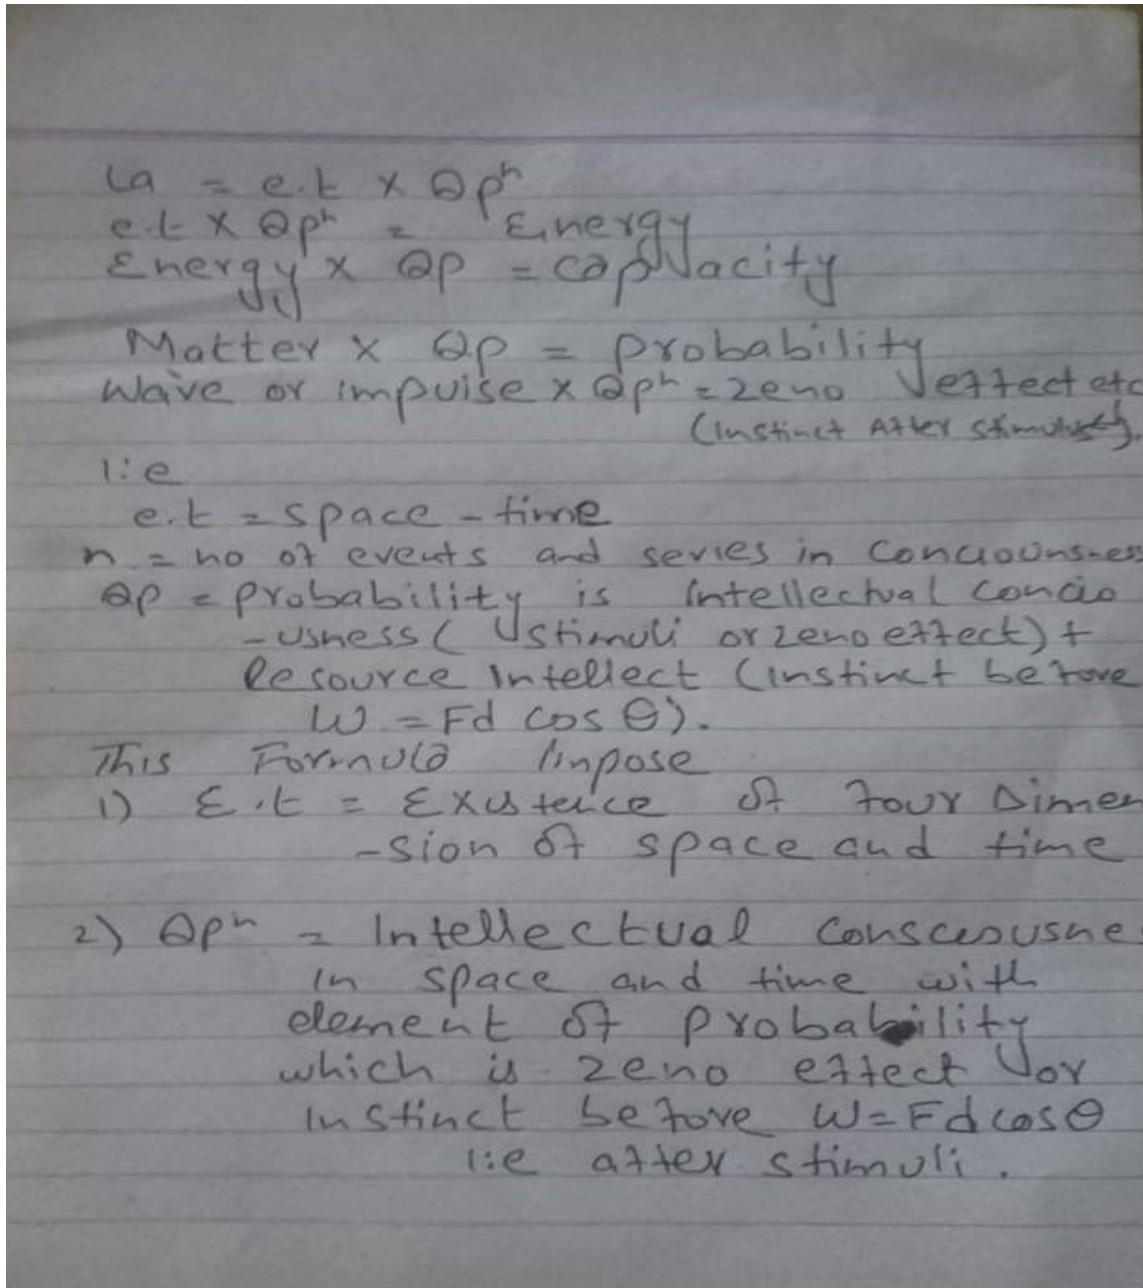 La = e.t x Qpⁿ
e.t x Qpⁿ = Energy
Energy x Qp = capacity
Matter x Qp = probability
wave or impulse x Qpⁿ = zeno effect etc
(instinct After stimulus).
i:e
e.t = space - time
n = no of events and series in Conciounsnes
Qp = probability is intellectual concio
-usness ( stimuli or zeno effect) +
Resource intellect (instinct before
W = Fd cos θ).
This Formula impose
1) E.t = Existence of four Dimen
-sion of space and time
2) Qpⁿ = Intellectual consciousne
in space and time with
element of probability
which is zeno effect or
instinct before W = Fd cos θ
i:e after stimuli.